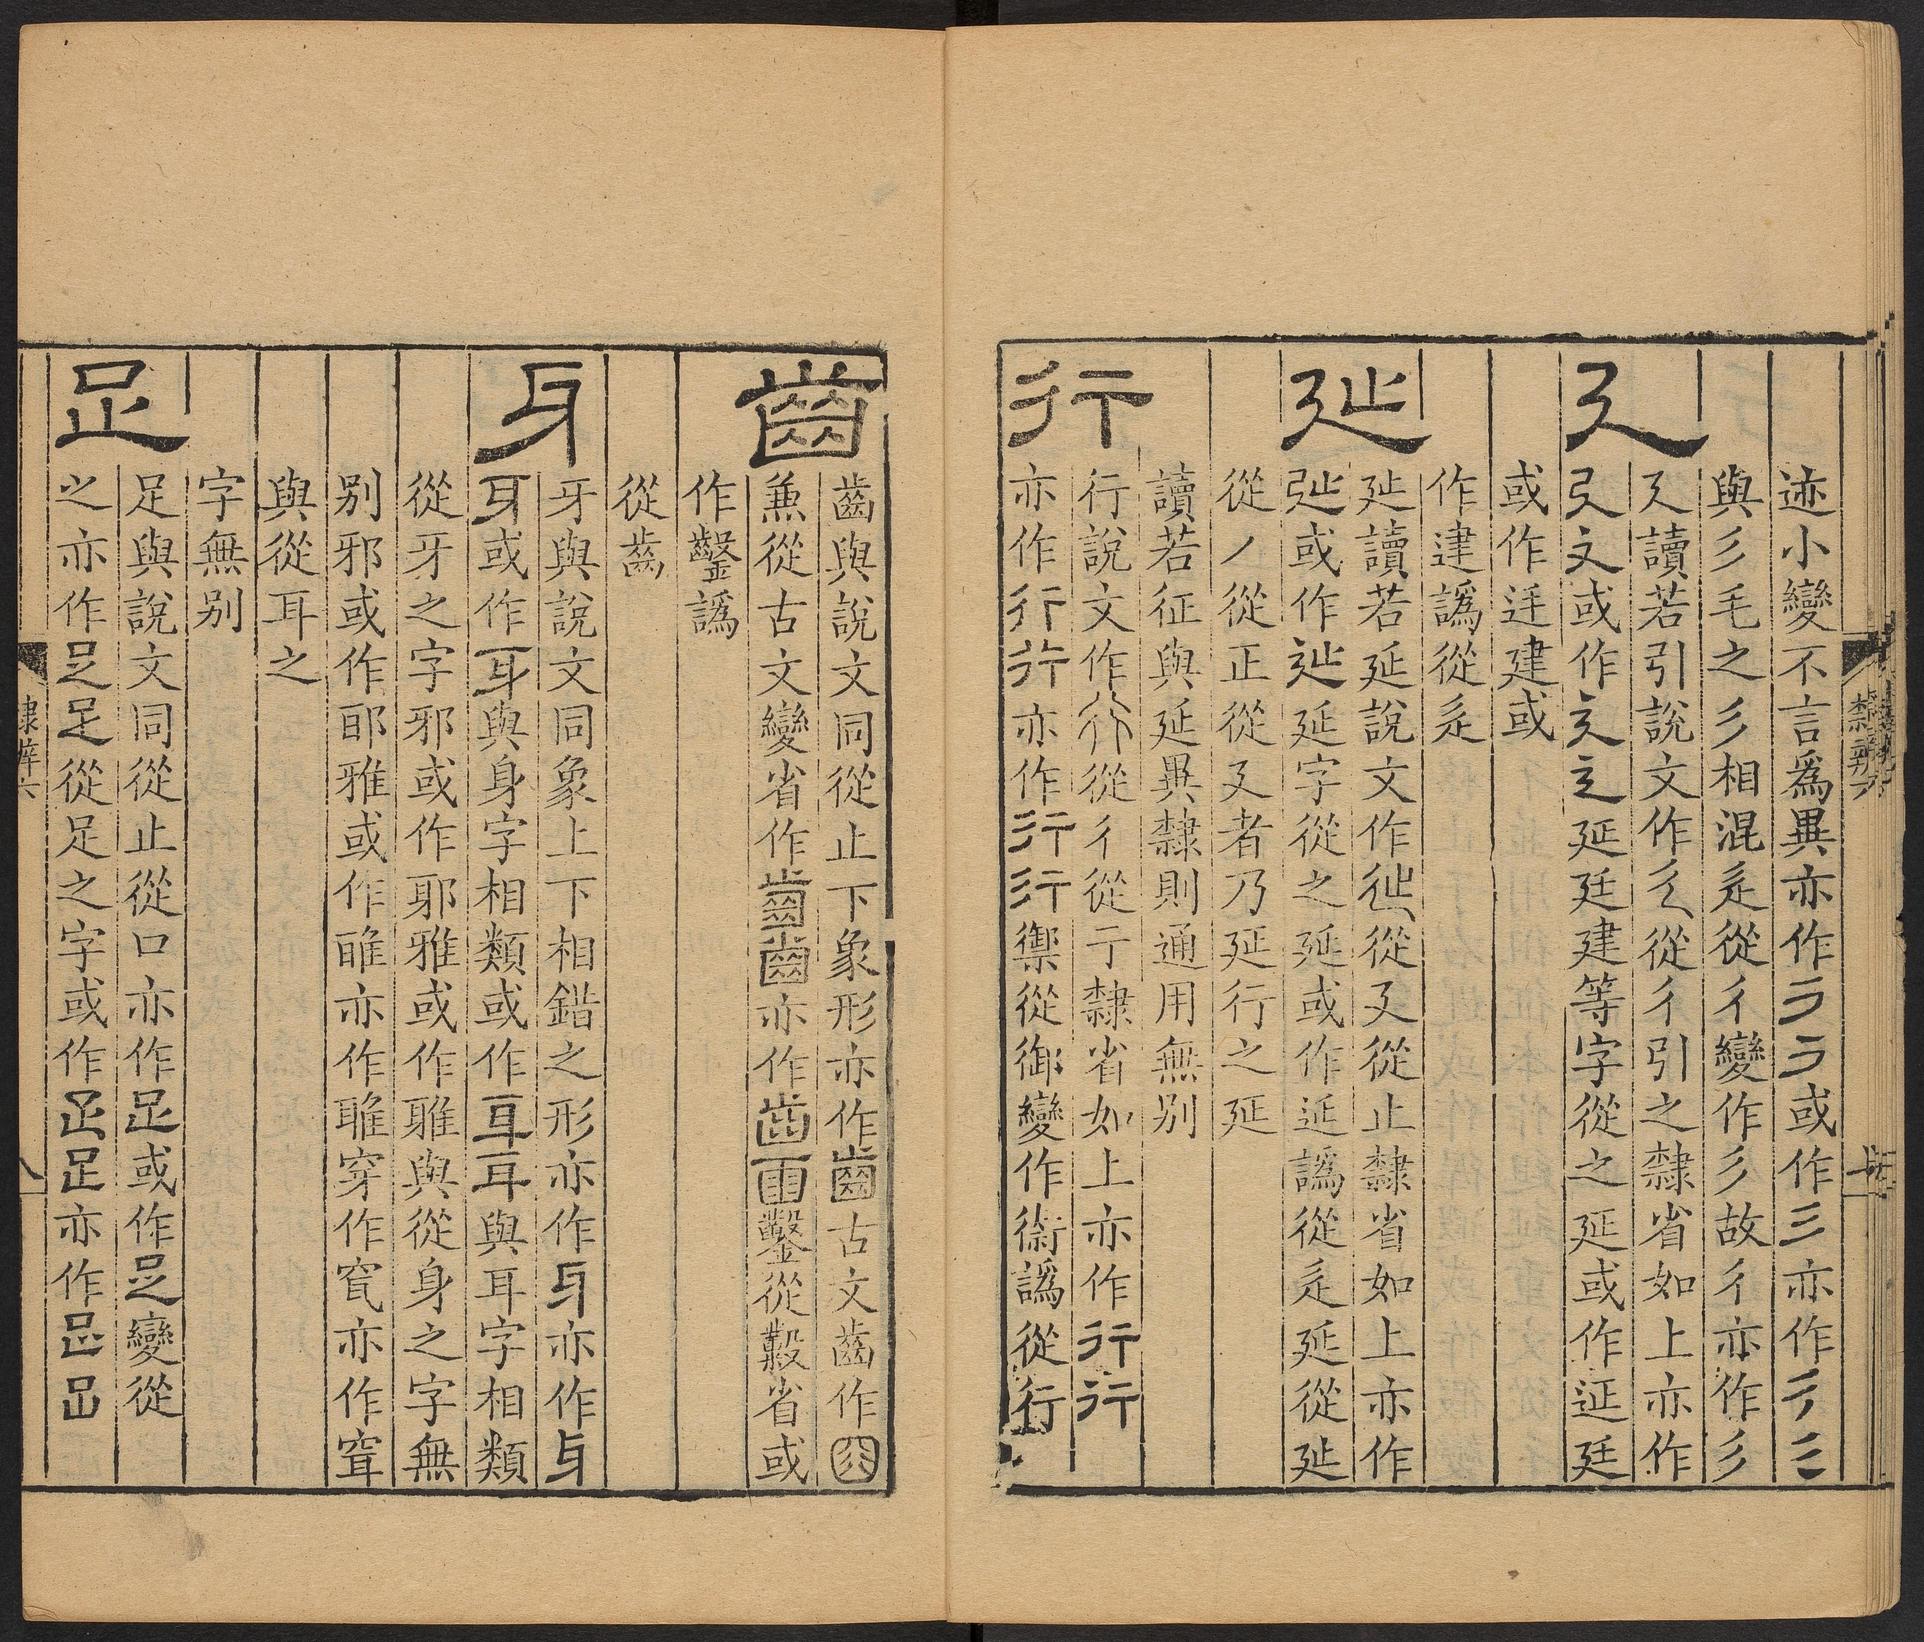 迹小變不言爲異亦作或作三亦作
與彡毛之彡相混辵從彳變作彡故彳亦作彡
廴
廴讀若引說文作廴從彳引之隸省如上亦作
弖文或作廴延廷建等字從之延或作延廷
或作迋建或
作建譌從辵
㢟
㢟讀若延說文作㢟從廴從止隸省如上亦作
㢟或作㢟延字從之延或作延譌從辵延從㢟
從丿從正從廴者乃延行之延
讀若征與延異隸則通用無別
行
行說文作從彳從亍隸省如上亦作行行
亦作行行亦作行行禦從御變作衘譌從行
隸辨六
齒
齒與說文同從止下象形亦作齒古文齒作
兼從古文變省作齒齒亦作齒鑿從毇省或
作鑿譌
從齒
牙
牙與說文同象上下相錯之形亦作亦作
牙或作牙與身字相類或作耳耳與耳字相類
從牙之字邪或作耶雅或作䧹與從身之字無
別邪或作耶雅或作亦作穿作亦作
與從耳之
字無別
足
足與說文同從止從口亦作足或作足變從
之亦作足足從足之字或作足足亦作
隸辨六